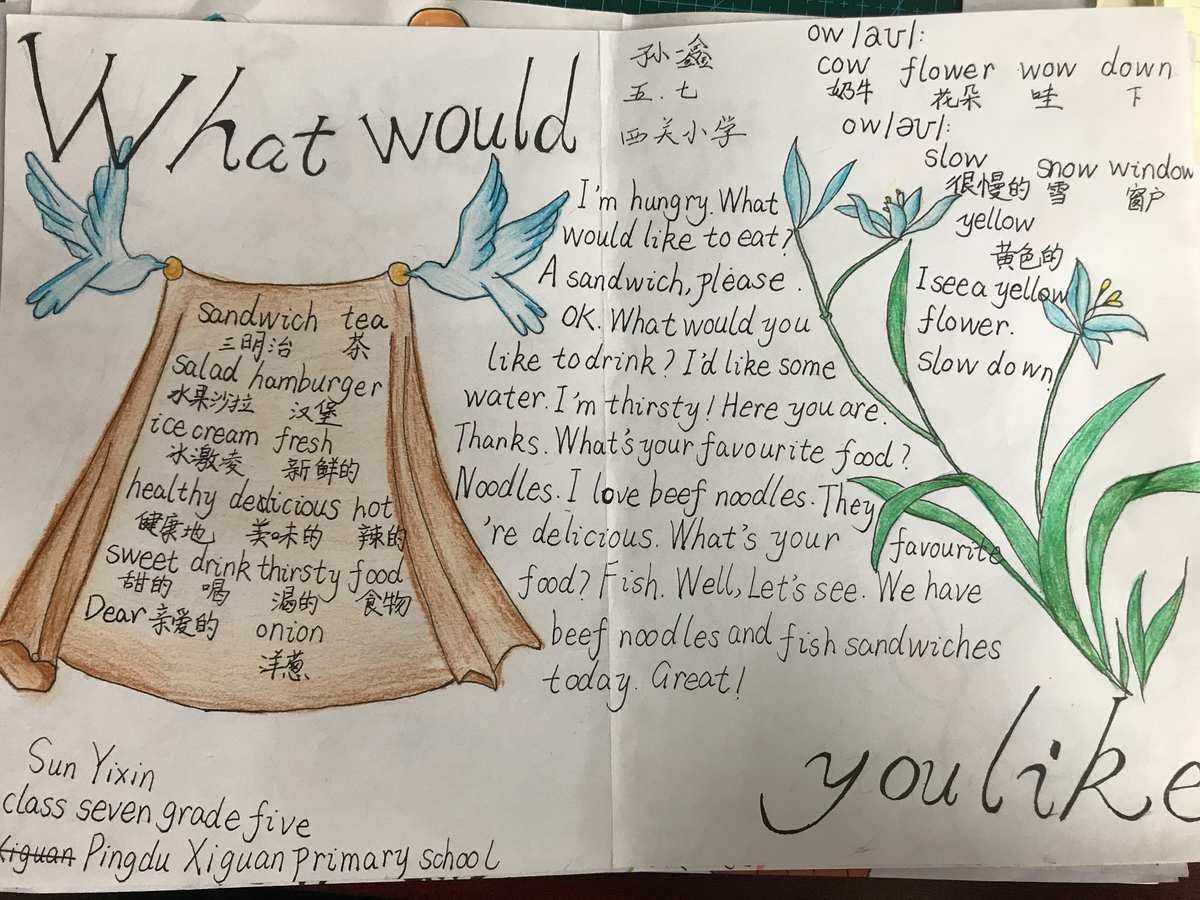 What would
孙一鑫
五.七
西关小学
ow/aʊ/:
cow flower wow down
奶牛 花朵 哇 下
ow/əʊ/:
slow snow window
很慢的 雪 窗户
yellow
黄色的
I see a yellow
flower.
slow down
sandwich tea
三明治 茶
salad hamburger
水果沙拉 汉堡
ice cream fresh
冰激凌 新鲜的
healthy hot
健康地 美味的 辣的
sweet drink thirsty food
甜的 喝 渴的 食物
Dear 亲爱的 onion
洋葱
I'm hungry. What
would like to eat?
A sandwich, please.
OK. What would you
like to drink? I'd like some
water. I'm thirsty! Here you are.
Thanks. What's your favourite food?
Noodles. I love beef noodles. They
're delicious. What's your favourite
food? Fish. Well, Let's see. We have
beef noodles and fish sandwiches
today. Great!
you like
Sun Yixin
class seven grade five
Xiguan Pingdu Xiguan primary school